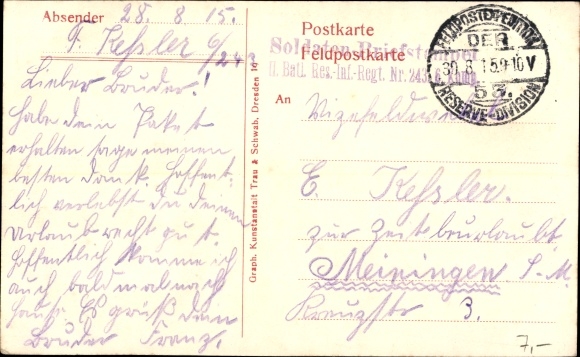 Absender 28. 8. 15.
F. Kessler 6/243
Lieber Bruder!
habe dein Paket
erhalten sage meinen
besten Dank. Hoffent-
lich verlebst du deinen
Urlaub recht gut.
Hoffentlich komme ich
auch bald mal nach
haus. Es grüß dein
Bruder Franz.
Graph. Kunstanstalt Trau & Schwab, Dresden 16
Postkarte
Feldpostkarte
Soldaten-Briefstempel
II. Batl. Res.-Inf.-Regt. Nr. 243. 6. Komp.
FELDPOSTEXPEDITION
DER
30. 8. 15. 9-10 V
53.
RESERVE-DIVISION
An
Vizefeldwebel
E. Kessler.
zur Zeit beurlaubt
Meiningen S. M.
Kreuzstr 3.
7,-